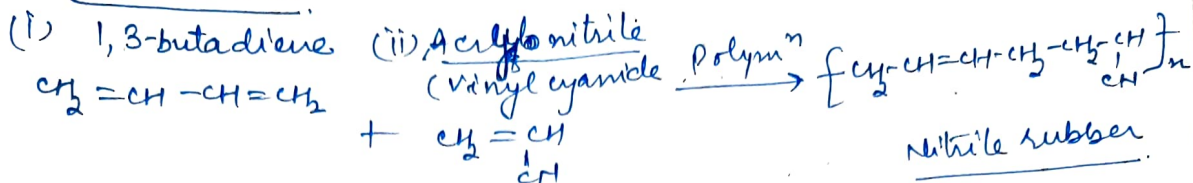 (i) 1,3-butadiene (ii) Acrylonitrile
(vinyl cyanide Polymⁿ
CH₂=CH-CH=CH₂ + CH₂=CH
CN
→ {CH₂-CH=CH-CH₂-CH₂-CH}ₙ
CN
Nitrile rubber